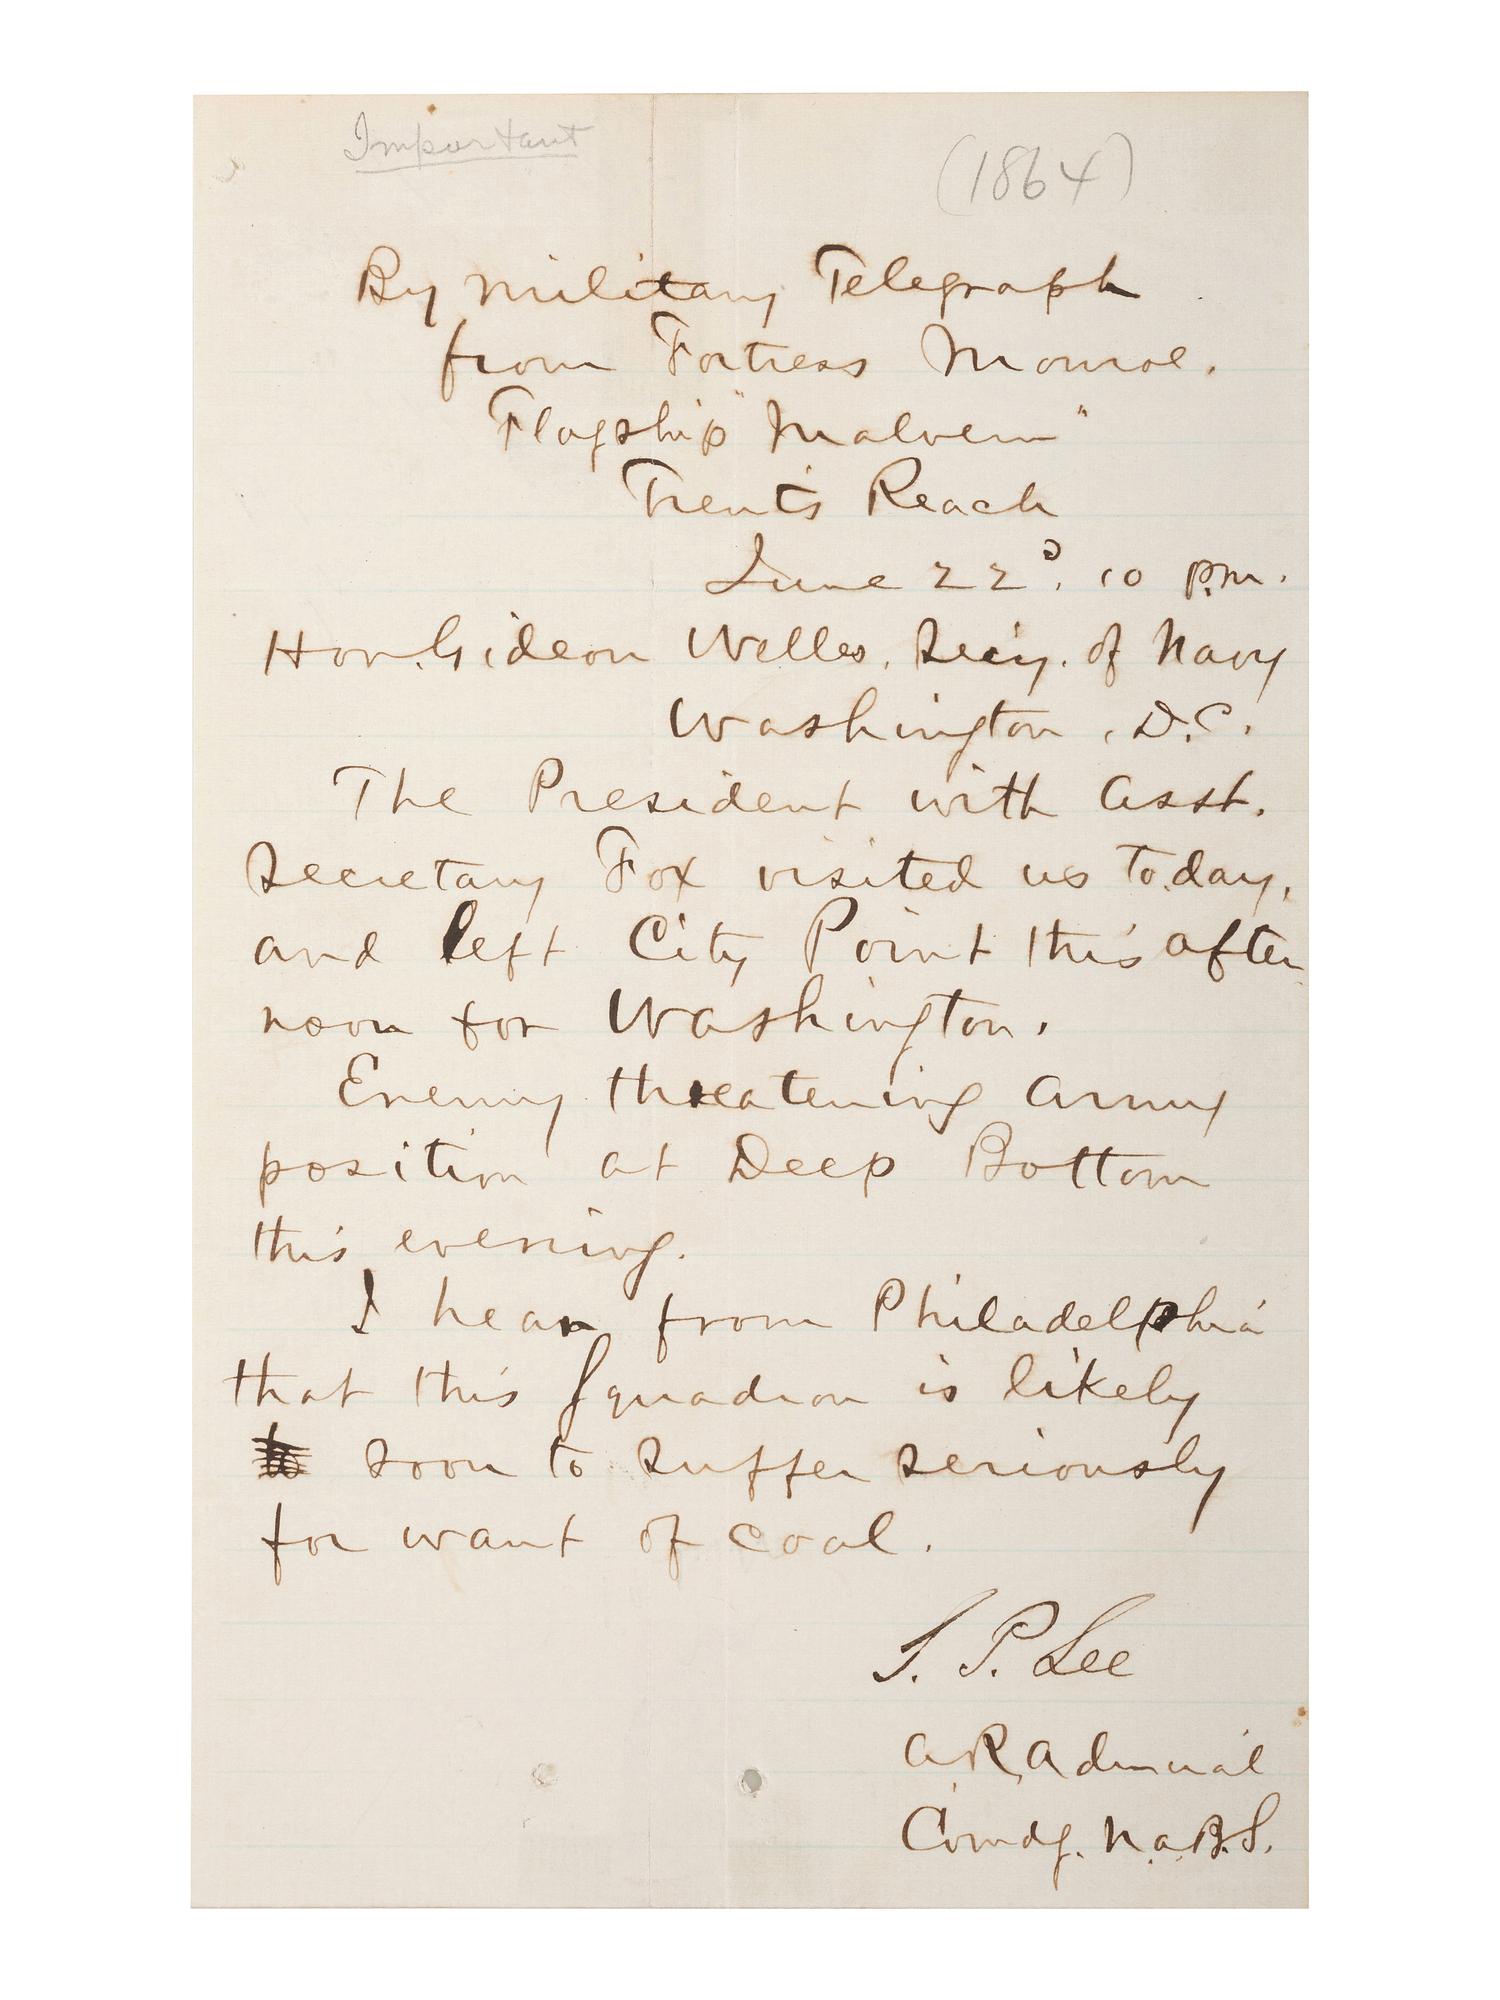 Important
(1864)
By Military Telegraph
from Fortress Monroe.
Flagship "Malvern"
Trent's Reach
June 22d. 10 p.m.
Hon. Gideon Welles, Secy. of Navy
Washington, D.C.
The President with Asst.
Secretary Fox visited us today,
and left City Point this after
noon for Washington.
Enemy threatening Army
position at Deep Bottom
this evening.
I hear from Philadelphia
that this Squadron is likely
to soon to suffer seriously
for want of coal.
S. P. Lee
A R Admiral
Comdg. N.A.B.S.